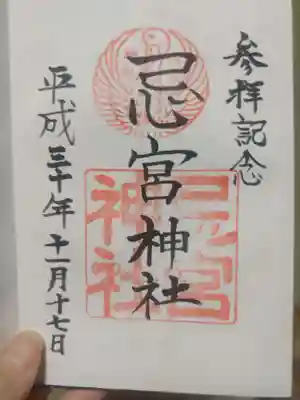 参拝記念
忌宮神社
忌宮
神社
平成三十年十一月十七日